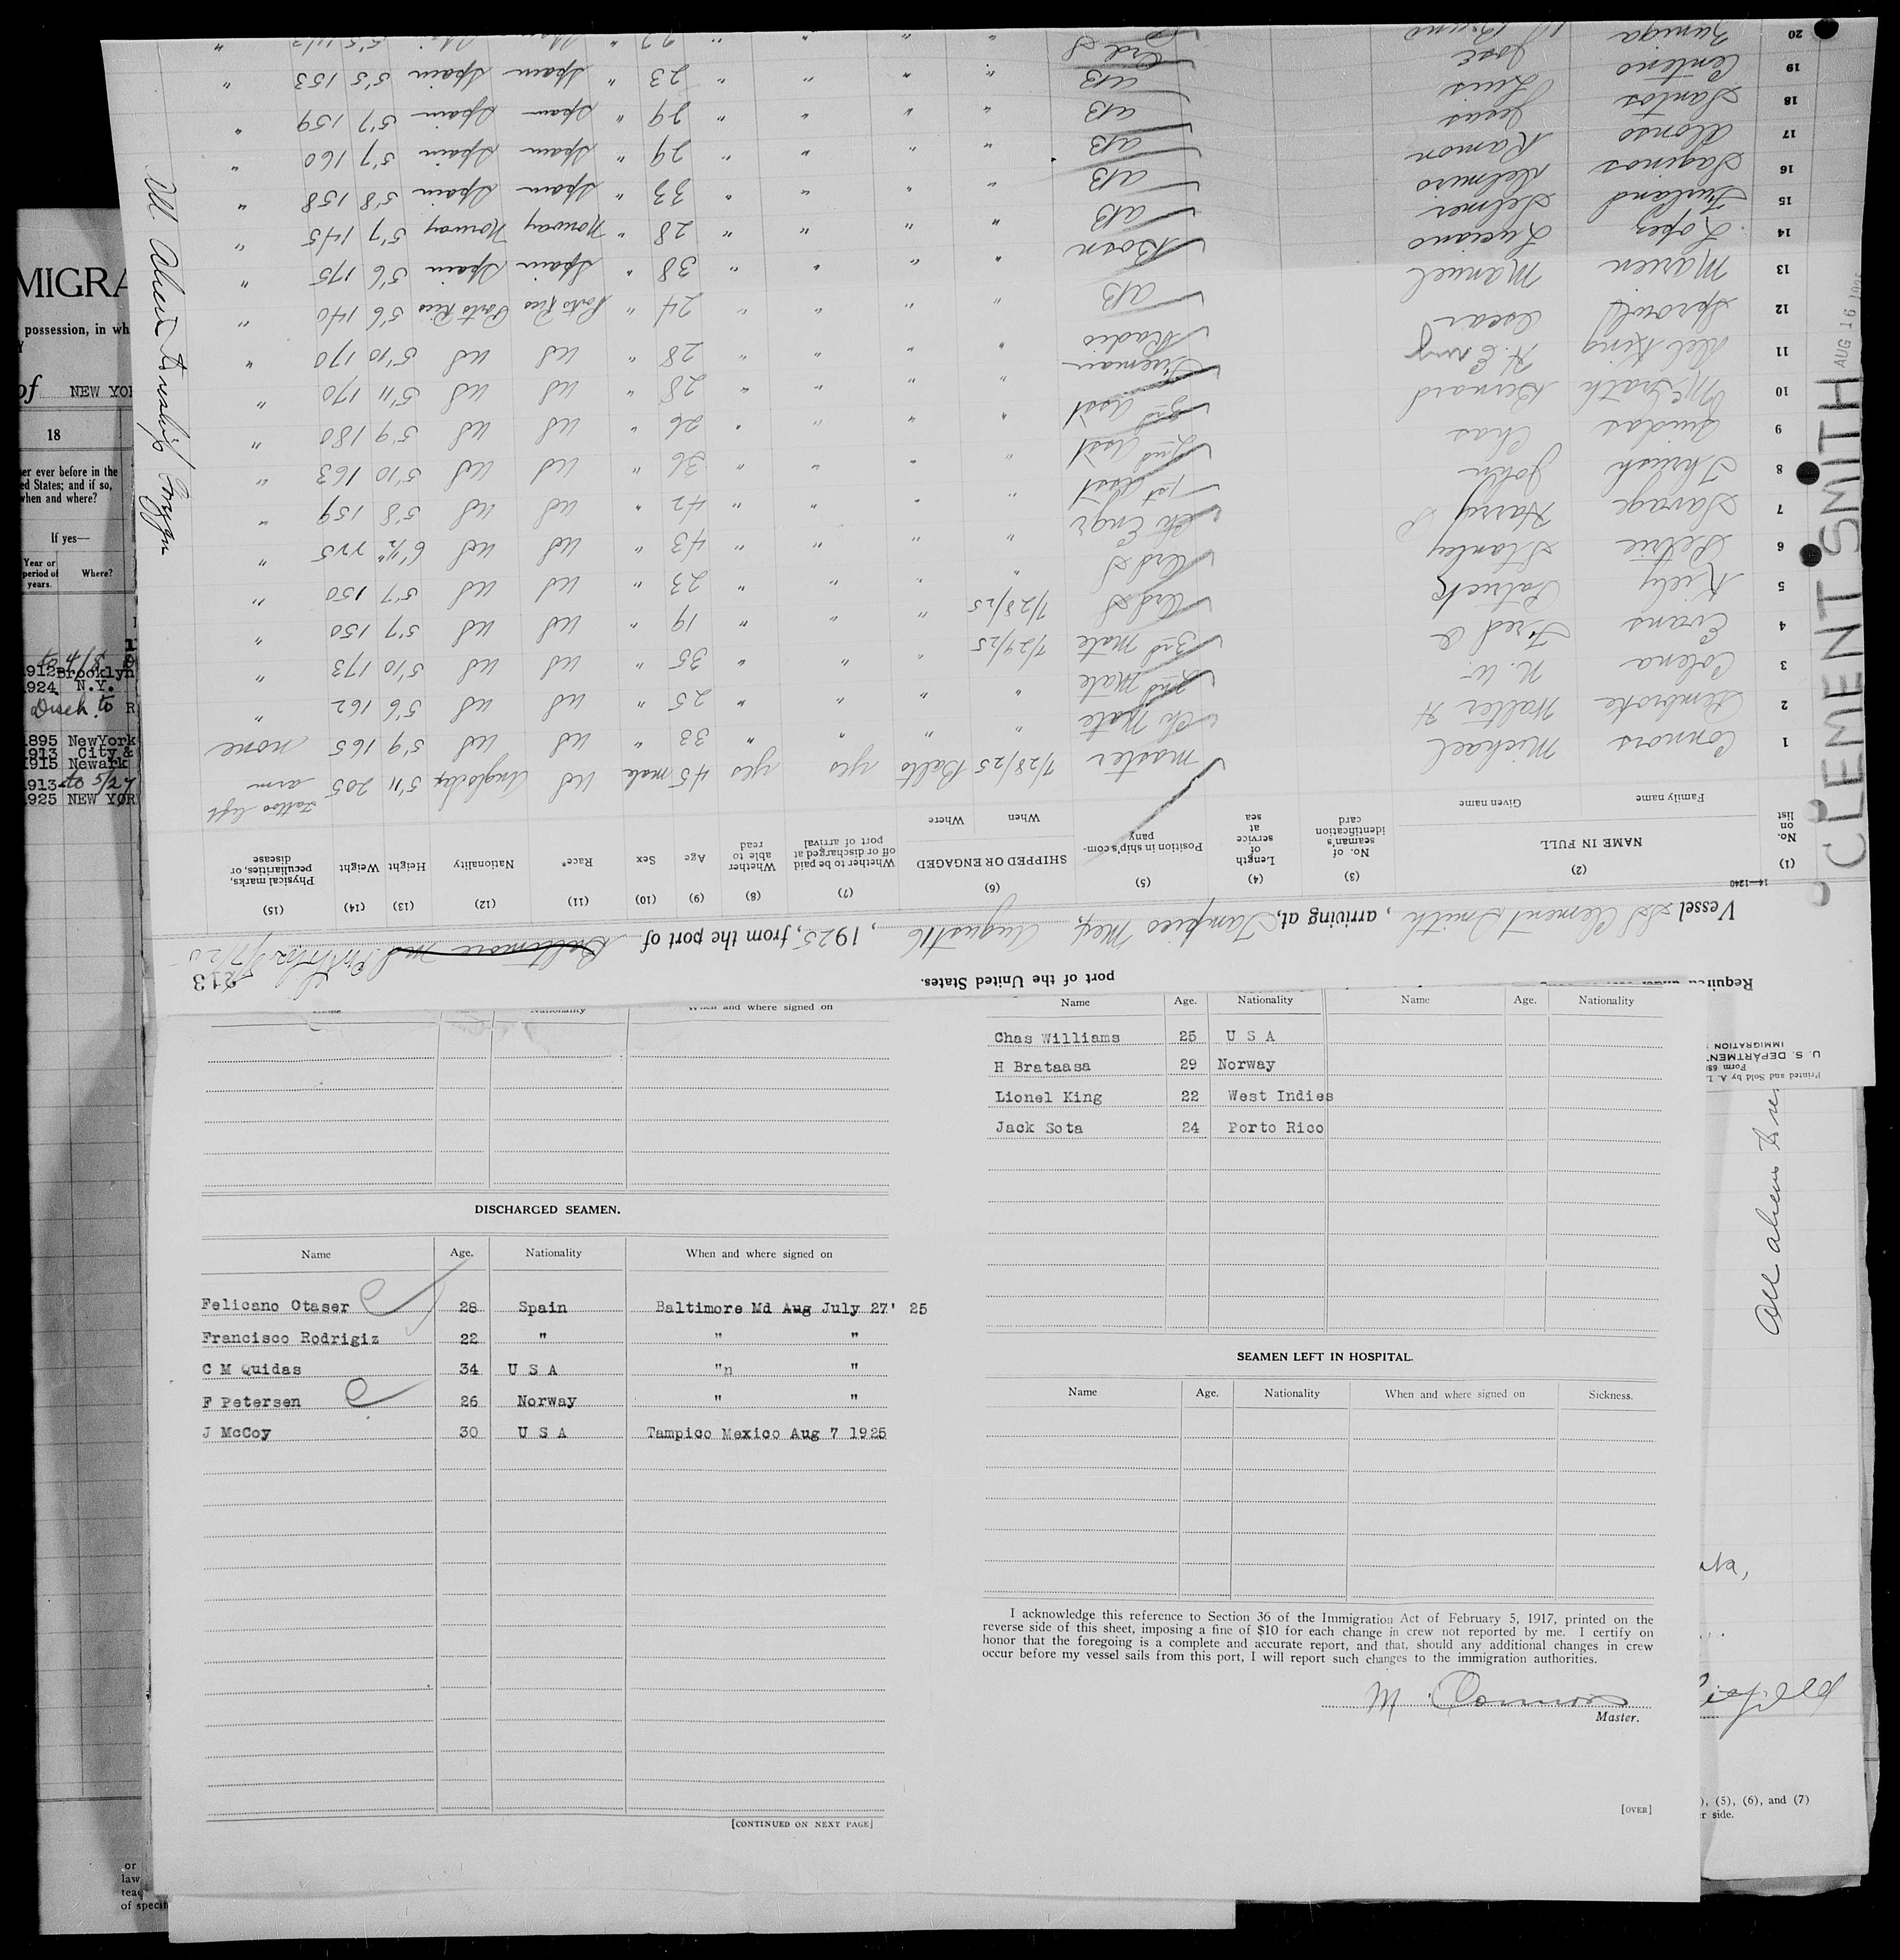 CLEMENT SMITH
AUG 16
Required
port of the United States.
9213
Vessel SS Clement Smith, arriving at, Tampico Mex, August 16, 1925, from the port of Baltimore Md
14—1240
(1) (2) (3) (4) (5) (6) (7) (8) (9) (10) (11) (12) (13) (14) (15)
No. on list NAME IN FULL No. of seaman's identification card Length of service at sea Position in ship's company SHIPPED OR ENGAGED Whether to be paid off or discharged at port of arrival Whether able to read Age Sex Race* Nationality Height Weight Physical marks, peculiarities, or disease
Family name Given name When Where
1 Connors Michael master 7/28/25 Balto yes yes 45 male US 5'11 205 Tattoo left arm
2 Pembroke Walter H Ch Mate " " " " 33 " US US 5'9 165 none
3 Colena N. W. 2nd Mate " " " " 25 " US US 5'6 162 "
4 Evans Fred A 3rd Mate 7/29/25 " " " 35 " US US 5'10 173 "
5 Kiely Patrick Ord S 7/28/25 " " " 19 " US US 5'7 150 "
6 Petrie Stanley Ord S " " " " 23 " US US 5'7 150 "
7 Savage Harry Ch Engr " " " " 43 " US US 6'1½" 225 "
8 Thrush John 1st Asst " " " " 42 " US US 5'8 159 "
9 Quidas Chas 2nd Asst " " " " 36 " US US 5'10 163 "
10 McGrath Bernard 3rd Asst " " " " 26 " US US 5'9 180 "
11 King Fireman " " " " 28 " US US 5'11 170 "
12 Sprowl Oscar Radio " " " " 28 " US US 5'10 170 "
13 Marien Manuel AB " " " " 24 " Porto Rico Porto Rico 5'6 140 "
14 Lopez Luciano Bosn " " " " 38 " Spain Spain 5'6 175 "
15 Selmer AB " " " " 28 " Norway Norway 5'7 145 "
16 Saginos AB " " " " 33 " Spain Spain 5'8 158 "
17 Alonso Ramon AB " " " " 29 " Spain Spain 5'7 160 "
18 Santos Jesus AB " " " " 29 " Spain Spain 5'7 159 "
19 Centeno Luis AB " " " " 23 " Spain Spain 5'5 153 "
20 Zuniga Jose Ord S
Printed and Sold by A. I.
Form 68
U. S. DEPARTMENT
IMMIGRATION
MIGRA
possession, in wh
of NEW YOR
18
er ever before in the
ed States; and if so,
when and where?
If yes—
Year or period of years. Where?
to 4/8
1912 Brooklyn
1924 N.Y.
Disch. to R
1895 NewYork
1913 City &
1915 Newark
1913 to 5/27
1925 NEW YOR
or
law
teac
of specif
Name Age. Nationality When and where signed on
DISCHARGED SEAMEN.
Name Age. Nationality When and where signed on
Felicano Otaser 28 Spain Baltimore Md Aug July 27' 25
Francisco Rodrigiz 22 " " "
C M Quidas 34 U S A "n "
F Petersen 26 Norway " "
J McCoy 30 U S A Tampico Mexico Aug 7 1925
[CONTINUED ON NEXT PAGE]
Name Age. Nationality Name Age. Nationality
Chas Williams 25 U S A
H Brataasa 29 Norway
Lionel King 22 West Indies
Jack Sota 24 Porto Rico
SEAMEN LEFT IN HOSPITAL.
Name Age. Nationality When and where signed on Sickness.
I acknowledge this reference to Section 36 of the Immigration Act of February 5, 1917, printed on the
reverse side of this sheet, imposing a fine of $10 for each change in crew not reported by me. I certify on
honor that the foregoing is a complete and accurate report, and that, should any additional changes in crew
occur before my vessel sails from this port, I will report such changes to the immigration authorities.
M Connors
Master.
[OVER]
All aliens to
), (5), (6), and (7)
r side.